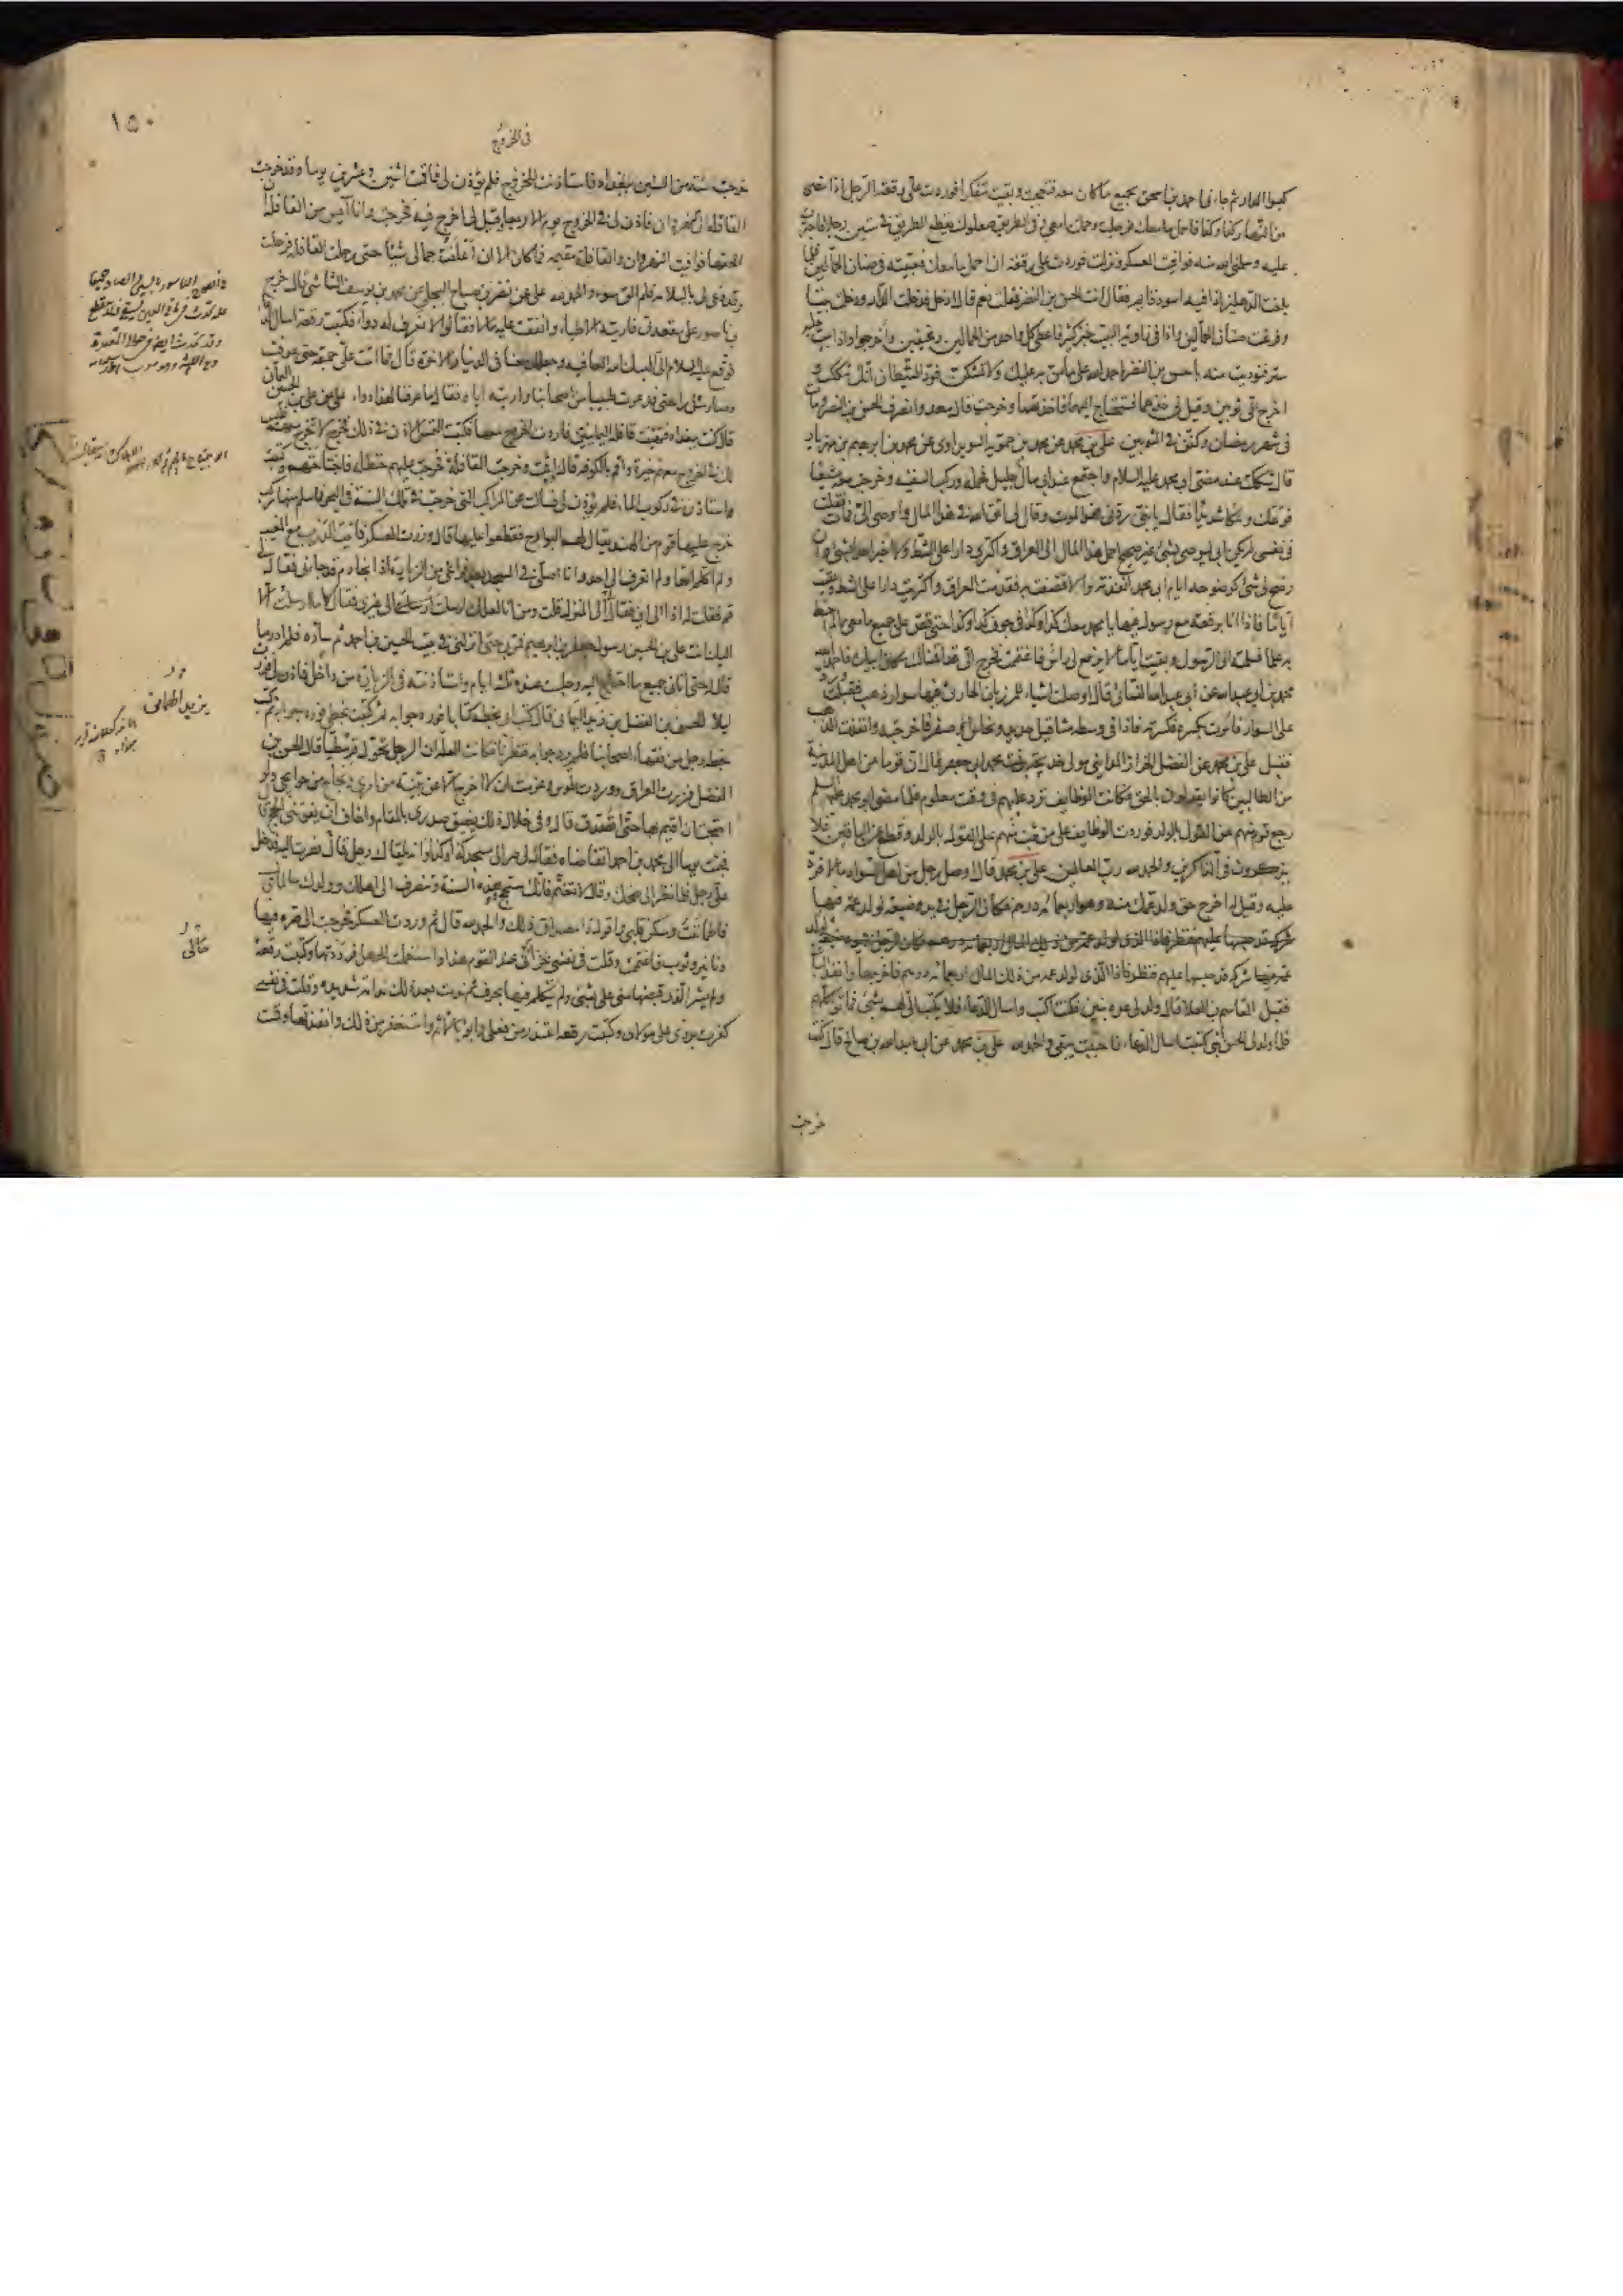 كبوا الدار ثم جاءني احمد بن اسحق بجميع ما كان معه فتعجبت وبقيت متفكرا فوردت علي رقعة الرجل اذا مضى
من النهار كذا وكذا فاحمل ما معك فرحلت وحملت ما معي وفي الطريق صعلوك يقطع الطريق في ستين رجلا فاجتزت
عليه وسلمني الله منه فوافيت العسكر ونزلت فوردت علي رقعة ان احمل ما معك فعبيته في صنان الحمالين فلما
بلغت الدهليز اذا فيه اسود قايم فقال انت الحسن بن النضر قلت نعم قال ادخل فدخلت الدار ودخلت بيتا
وفرغت صنان الحمالين واذا في زاوية البيت خبز كثير فاعطى كل واحد من الحمالين رغيفين واخرجوا واذا بيت عليه
ستر فنوديت منه يا حسن بن النضر احمد الله على ما من به عليك ولا تشكن فود الشيطان انك شككت و
اخرج الي ثوبين وقيل لي خذهما فستحتاج اليهما فاخذتهما وخرجت قال سعد وانصرف الحسن بن النضر ومات
في شهر رمضان وكفن في الثوبين علي بن محمد عن محمد بن حمويه السويداوي عن محمد بن ابرهيم بن مهزيار
قال شككت عند مضي ابي محمد عليه السلام واجتمع عند ابي مال جليل فحمله وركب السفينة وخرجت معه مشيعا
فوعك وعكا شديدا فقال يا بني ردني فهو الموت وقال لي اتق الله في هذا المال واوصى الي فمات فقلت
في نفسي لم يكن ابي ليوصي بشئ غير صحيح احمل هذا المال الى العراق واكتري دارا على الشط ولا اخبر احدا بشئ وان
وضح لي شئ كوضوحه ايام ابي محمد انفذته والا قصفت به فقدمت العراق واكتريت دارا على الشط وبقيت
اياما فاذا انا برقعة مع رسول فيها يا محمد معك كذا وكذا في جوف كذا وكذا حتى قص علي جميع ما معي مما لم احط
به علما فسلمت الى الرسول وبقيت اياما لا يرفع لي راس فاغتممت فخرج الي قد اقمناك مكان ابيك فاحمد الله
محمد بن ابي عبد الله عن ابي عبد الله النسائي قال اوصلت اشياء للمرزباني الحارثي فيها سوار ذهب فقبلت ورد
علي السوار فامرت بكسره فكسرته فاذا في وسطه مثاقيل حديد ونحاس او صفر فاخرجته وانفذت الذهب
فقبل علي بن محمد عن الفضل الخزاز المدايني مولى خديجة بنت محمد ابي جعفر قال ان قوما من اهل المدينة
من الطالبيين كانوا يقولون بالحق فكانت الوظايف ترد عليهم في وقت معلوم فلما مضى ابو محمد عليه السلم
رجع قوم منهم عن القول بالولد فوردت الوظايف على من ثبت منهم على القول بالولد وقطع عن الباقين فلا
يذكرون في الذاكرين والحمد لله رب العالمين علي بن محمد قال اوصل رجل من اهل السواد مالا فرد
عليه وقيل له اخرج حق ولد عمك منه وهو اربعمائة درهم فكان الرجل في يده ضيعة لولد عمه فيها
شركة قد حبسها عليهم فنظر فاذا الذي لولد عمه من ذلك المال اربعمائة درهم
فيها شركة قد حبسها عليهم فنظر فاذا الذي لولد عمه من ذلك المال اربعمائة درهم فاخرجها وانفذ الباقي
فقبل القاسم بن العلا قال ولد لي عدة بنين فكنت اكتب واسال الدعاء فلا يكتب الي لهم بشئ فماتوا كلهم
فلما ولد لي الحسن ابني كتبت اسال الدعاء فاجبت يبقى والحمد لله علي بن محمد عن ابي عبد الله بن صالح قال كنت
خرجت
١٥٠
في الخروج
خرجت سنة من السنين ببغداد فاستاذنت في الخروج فلم يؤذن لي فاقمت اثنين وعشرين يوما وقد خرجت
القافلة الى النهروان فاذن لي في الخروج يوم الاربعاء وقيل لي اخرج فيه فخرجت وانا آيس من القافلة ان
الحقها فوافيت النهروان والقافلة مقيمة فما كان الا ان اعلفت جمالي شيئا حتى رحلت القافلة فرحلت
وقد دعى لي بالسلامة فلم الق سوءا والحمد لله علي عن نضر بن صباح البجلي عن محمد بن يوسف الشاشي قال خرج
بي ناصور على مقعدتي فاريته الاطباء وانفقت عليه مالا فقالوا لا نعرف له دواء فكتبت رقعة اسال الدعاء
فوقع عليه السلام الي البسك الله العافية وجعلك معنا في الدنيا والاخرة قال فما اتت علي جمعة حتى عوفيت
وصار مثل راحتي فدعوت طبيبا من اصحابنا واريته اياه فقال ما عرفنا لهذا دواء علي عن علي بن الحسين اليماني
قال كنت ببغداد فتهيأت قافلة لليمانيين فاردت الخروج معها فكتبت التمس الاذن في ذلك فخرج لا تخرج معهم فليس
لك في الخروج معهم خيرة واقم بالكوفة قال واقمت وخرجت القافلة فخرجت عليهم حنظلة فاجتاحتهم وكتبت
استاذن في ركوب الماء فلم يؤذن لي فسالت عن المراكب التي خرجت في تلك السنة في البحر فما سلم منها مركب
خرج عليها قوم من الهند يقال لهم البوارح فقطعوا عليها قال وزرت العسكر فاتيت الدرب مع المغيب
ولم اكلم احدا ولم اتعرف الى احد وانا اصلي في المسجد بعد فراغي من الزيارة اذا بخادم قد جاءني فقال لي
قم فقلت له اذا الى اين فقال لي الى المنزل قلت ومن انا لعلك ارسلت الى غيري فقال لا ما ارسلت الا
اليك انت علي بن الحسين رسول جعفر بن ابرهيم فمر بي حتى انزلني في بيت الحسين بن احمد ثم ساره فلم ادر ما
قال له حتى اتاني جميع ما احتاج اليه وجلست عنده ثلثة ايام واستاذنته في الزيارة من داخل فاذن لي فزرت
ليلا الحسن بن الفضل بن زيد اليماني قال كتب ابي بخطه كتابا فورد جوابه ثم كتبت بخطي فورد جوابه ثم كتب
بخطه رجل من فقهاء اصحابنا فلم يرد جوابه فنظرنا فكانت العلة ان الرجل تحول قرمطيا قال الحسن بن
الفضل فزرت العراق ووردت طوس وعزمت ان لا اخرج الا عن بينة من امري ونجاح من حوايجي ولو
احتجت ان اقيم بها حتى اتصدق قال وفي خلال ذلك يضيق صدري بالمقام واخاف ان يفوتني الحج قال
فجئت يوما الى محمد بن احمد اتقاضاه فقال لي صر الى مسجد كذا وكذا وانه يلقاك رجل قال فصرت اليه فدخل
علي رجل فلما نظر الي ضحك وقال لا تغتم فانك ستحج في هذه السنة وتنصرف الى اهلك وولدك سالما قال
فاطماننت وسكن قلبي واقول ذا مصداق ذلك والحمد لله قال ثم وردت العسكر فخرجت الي صرة فيها
دنانير وثوب فاغتممت وقلت في نفسي جزائي عند القوم هذا واستعملت الجهل فرددتها وكتبت رقعة
ولم يشر الذي قبضها مني علي بشئ ولم يتكلم فيها بحرف ثم ندمت بعد ذلك ندامة شديدة وقلت في نفسي
كفرت بردي على مولاي وكتبت رقعة اعتذر من فعلي وابوء بالاثم واستغفر من ذلك وانفذتها وقمت